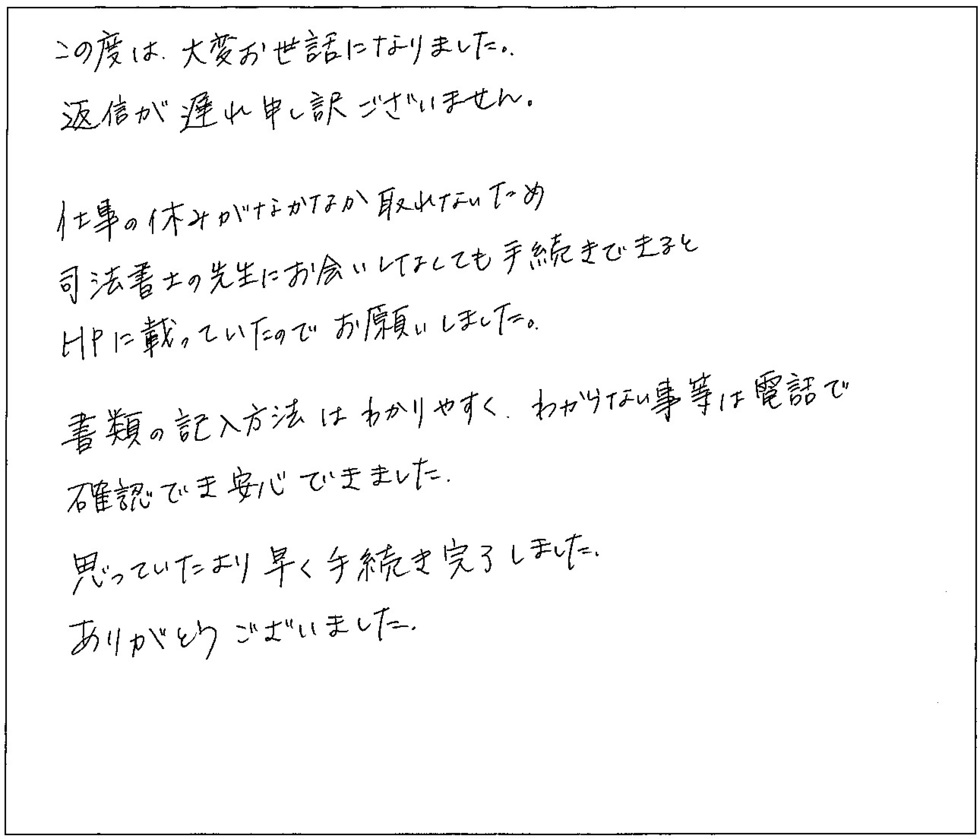 この度は、大変お世話になりました。
返信が遅れ申し訳ございません。
仕事の休みがなかなか取れないため
司法書士の先生にお会いしなくても手続きできると
HPに載っていたのでお願いしました。
書類の記入方法はわかりやすく、わからない事等は電話で
確認でき安心できました。
思っていたより早く手続き完了しました。
ありがとうございました。